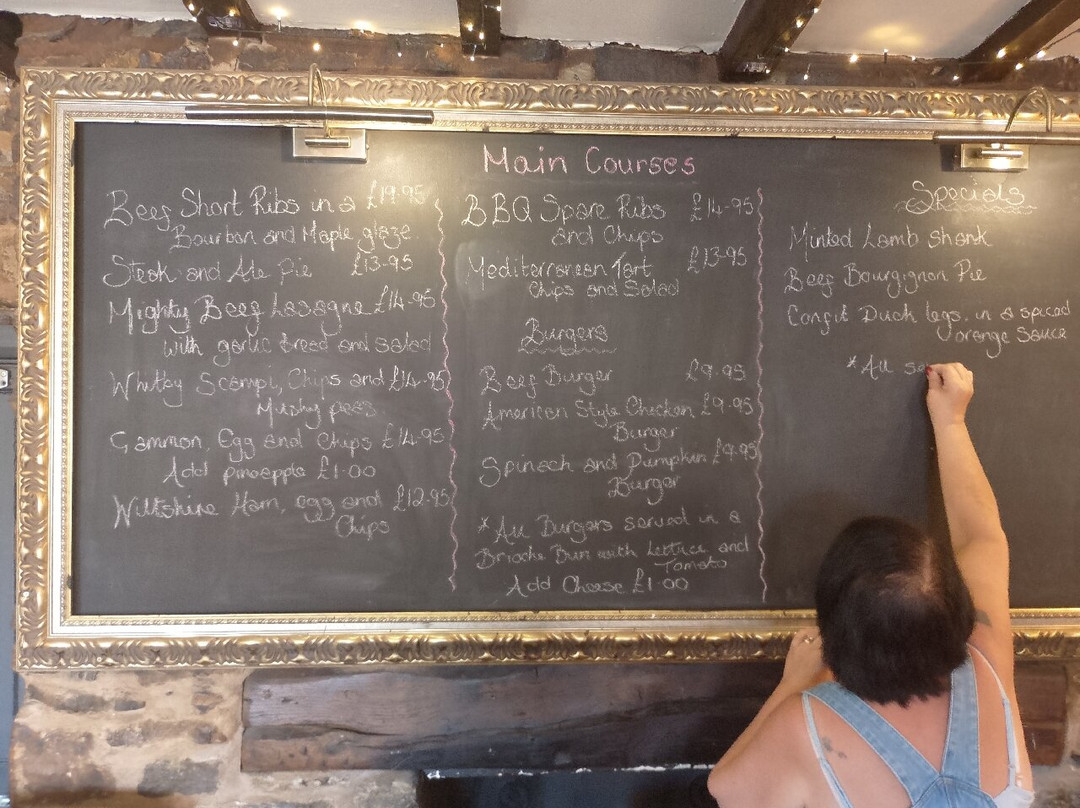 Main Courses
Beef Short Ribs in a £19-95
Bourbon and Maple glaze
Steak and Ale Pie £13-95
Mighty Beef Lasagne £14-95
with garlic bread and salad
Whitby Scampi, Chips and £14-95
Mushy peas
Gammon, Egg and Chips £14-95
Add pineapple £1-00
Wiltshire Ham, egg and £12-95
Chips
BBQ Spare Ribs £14-95
and Chips
Mediterranean Tart £13-95
Chips and Salad
Burgers
Beef Burger £9-95
American Style Chicken £9-95
Burger
Spinach and Pumpkin £9-95
Burger
*All Burgers served in a
Brioche Bun with Lettuce and
Tomato
Add Cheese £1-00
Specials
Minted Lamb Shank
Beef Bourgignon Pie
Confit Duck legs, in a spiced
orange Sauce
*All se